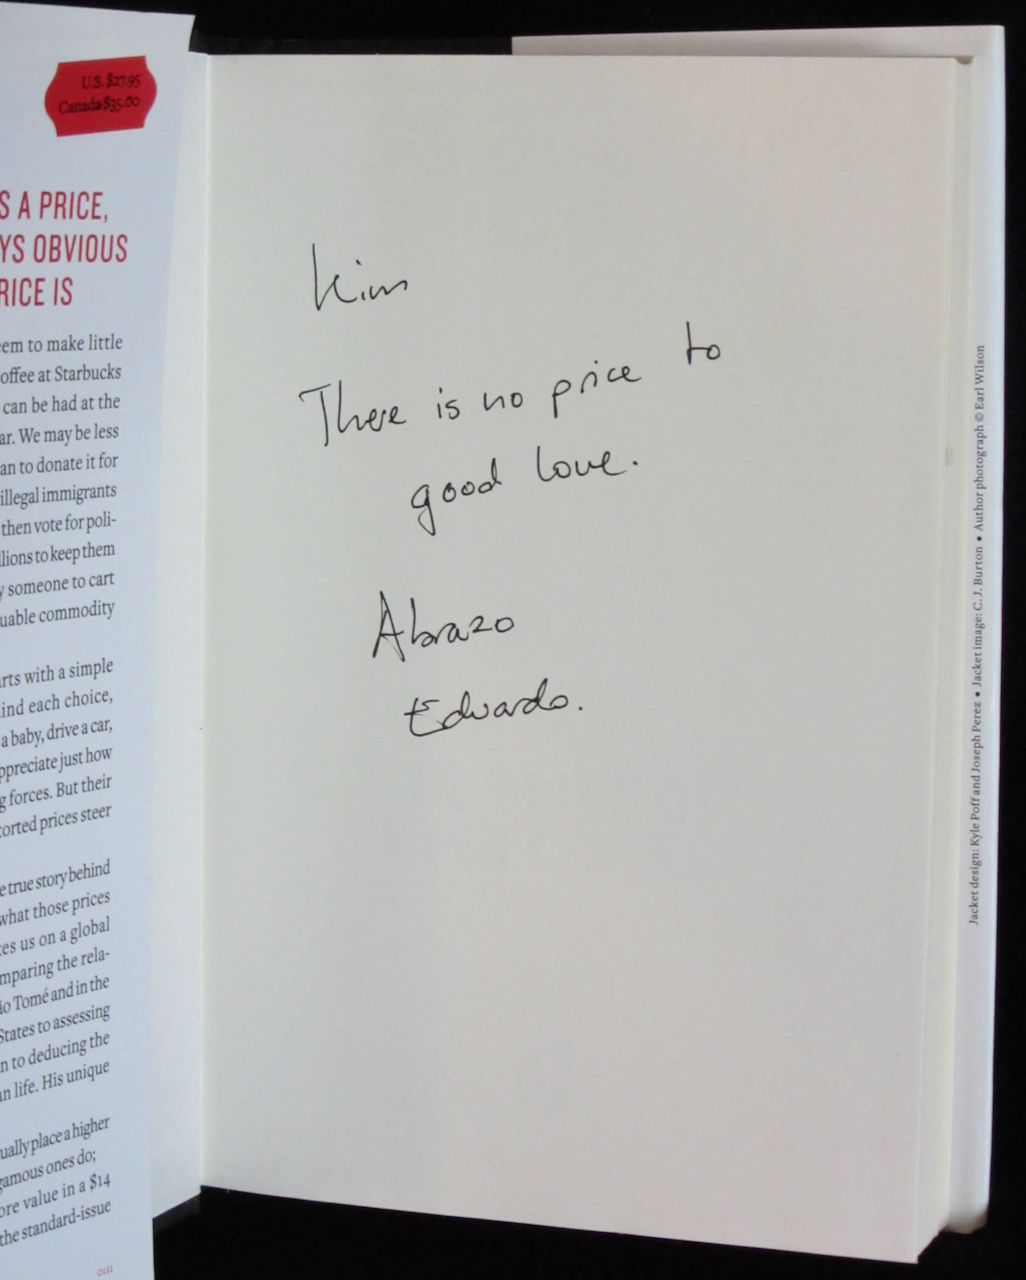 U.S. $27.95
Canada $35.00
S A PRICE,
YS OBVIOUS
RICE IS
em to make little
offee at Starbucks
can be had at the
ar. We may be less
an to donate it for
illegal immigrants
then vote for poli-
llions to keep them
y someone to cart
uable commodity
rts with a simple
ind each choice,
a baby, drive a car,
ppreciate just how
g forces. But their
torted prices steer
e true story behind
what those prices
es us on a global
mparing the rela-
ão Tomé and in the
States to assessing
n to deducing the
an life. His unique
ually place a higher
gamous ones do;
ore value in a $14
the standard-issue
0111
Kim
There is no price to
good love.
Abrazo
Eduardo.
Jacket design: Kyle Poff and Joseph Perez • Jacket image: C. J. Burton • Author photograph © Earl Wilson